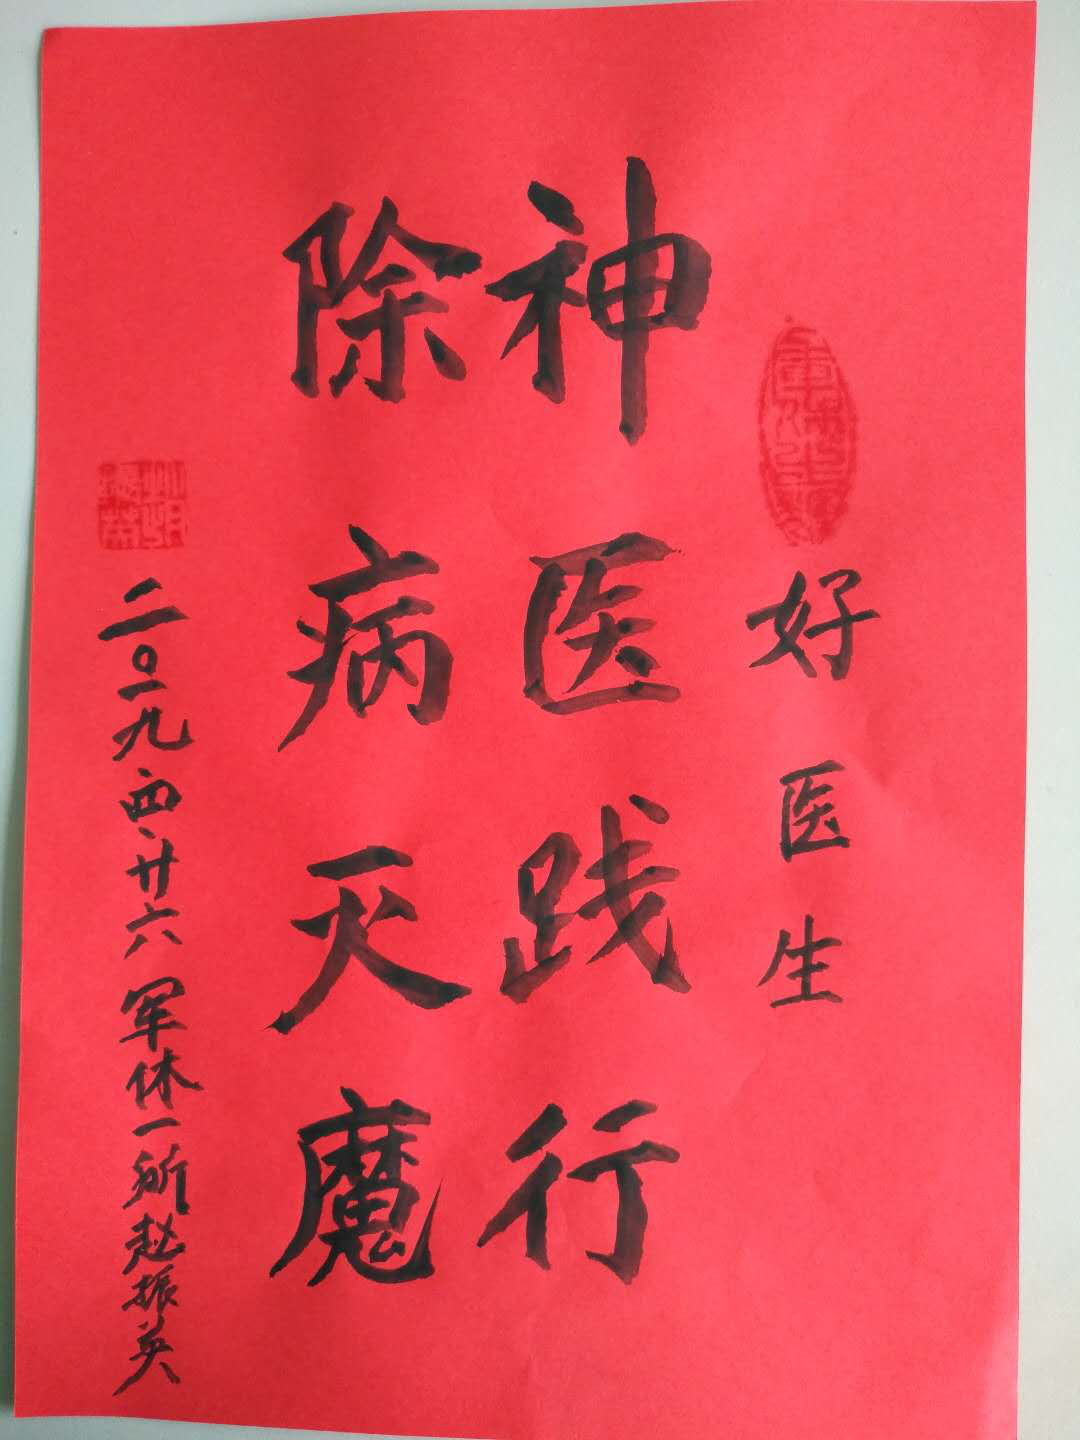 好医生
神医践行
除病灭魔
二〇一九、四、廿六军休一所赵振英